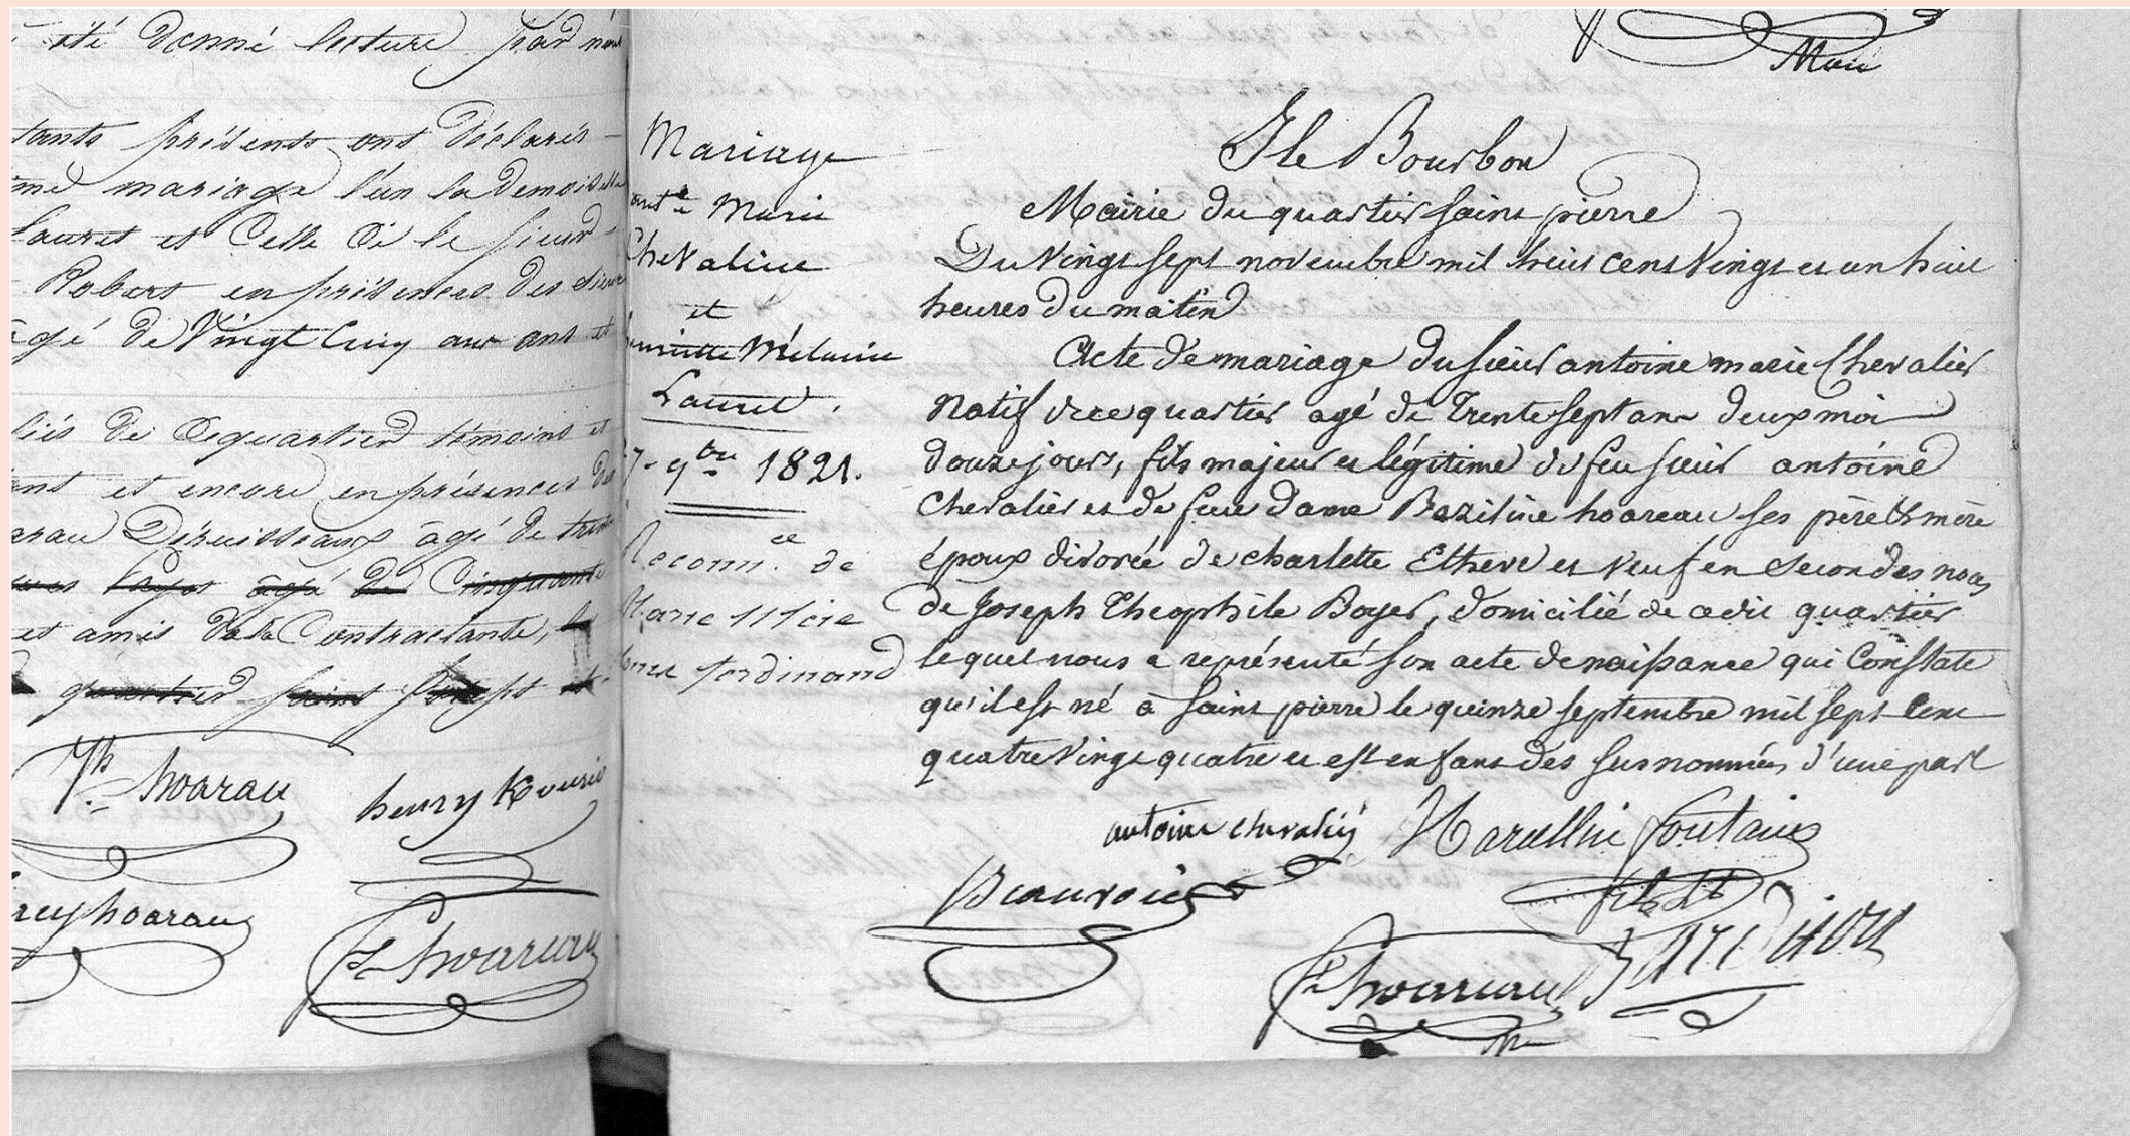 été donné lecture par nous
tants présents ont déclarés
mariage l'un la demoiselle
Lauret et Celle Ci le sieur
Robert en présences des Sieurs
agé de Vingt Cinq aux ans et
de Cequartier témoins et
et encore en présences
Déruisseaux âgé de trente
âgé de Cinquante
et amis de la Contractante,
quartier saint Joseph et
Th. hoarau
henry
hoarau
hoarau
Maire
Mariage
antne Marie
Chevalier
et
henriette Mélanie
Lauret.
7. 9bre 1821.
Reconn.ce de
Marie
ferdinand
Ile Bourbon
Mairie du quartier saint pierre
Du Vingt sept novembre mil huit cent Vingt et un huit
heures du matin
Acte de mariage du sieur antoine marie Chevalier
Natif de ce quartier agé de Trente sept ans deux moi
douze jours, fils majeur et légitime de feu sieur antoine
Chevalier et de feue dame Baziline hoareau ses père et mère
époux divorée de charlette Etheve et Veuf en Secondes noces
de Joseph Theophile Boyer, domicilié de cedit quartier
lequel nous a représenté son acte de naissance qui Constate
qu'il est né à saint pierre le quinze septembre mil sept Cent
quatre Vingt quatre et est enfant des susnommés, d'une part
antoine chevalier
Marcellin fontaine
Beauvais
hoarau